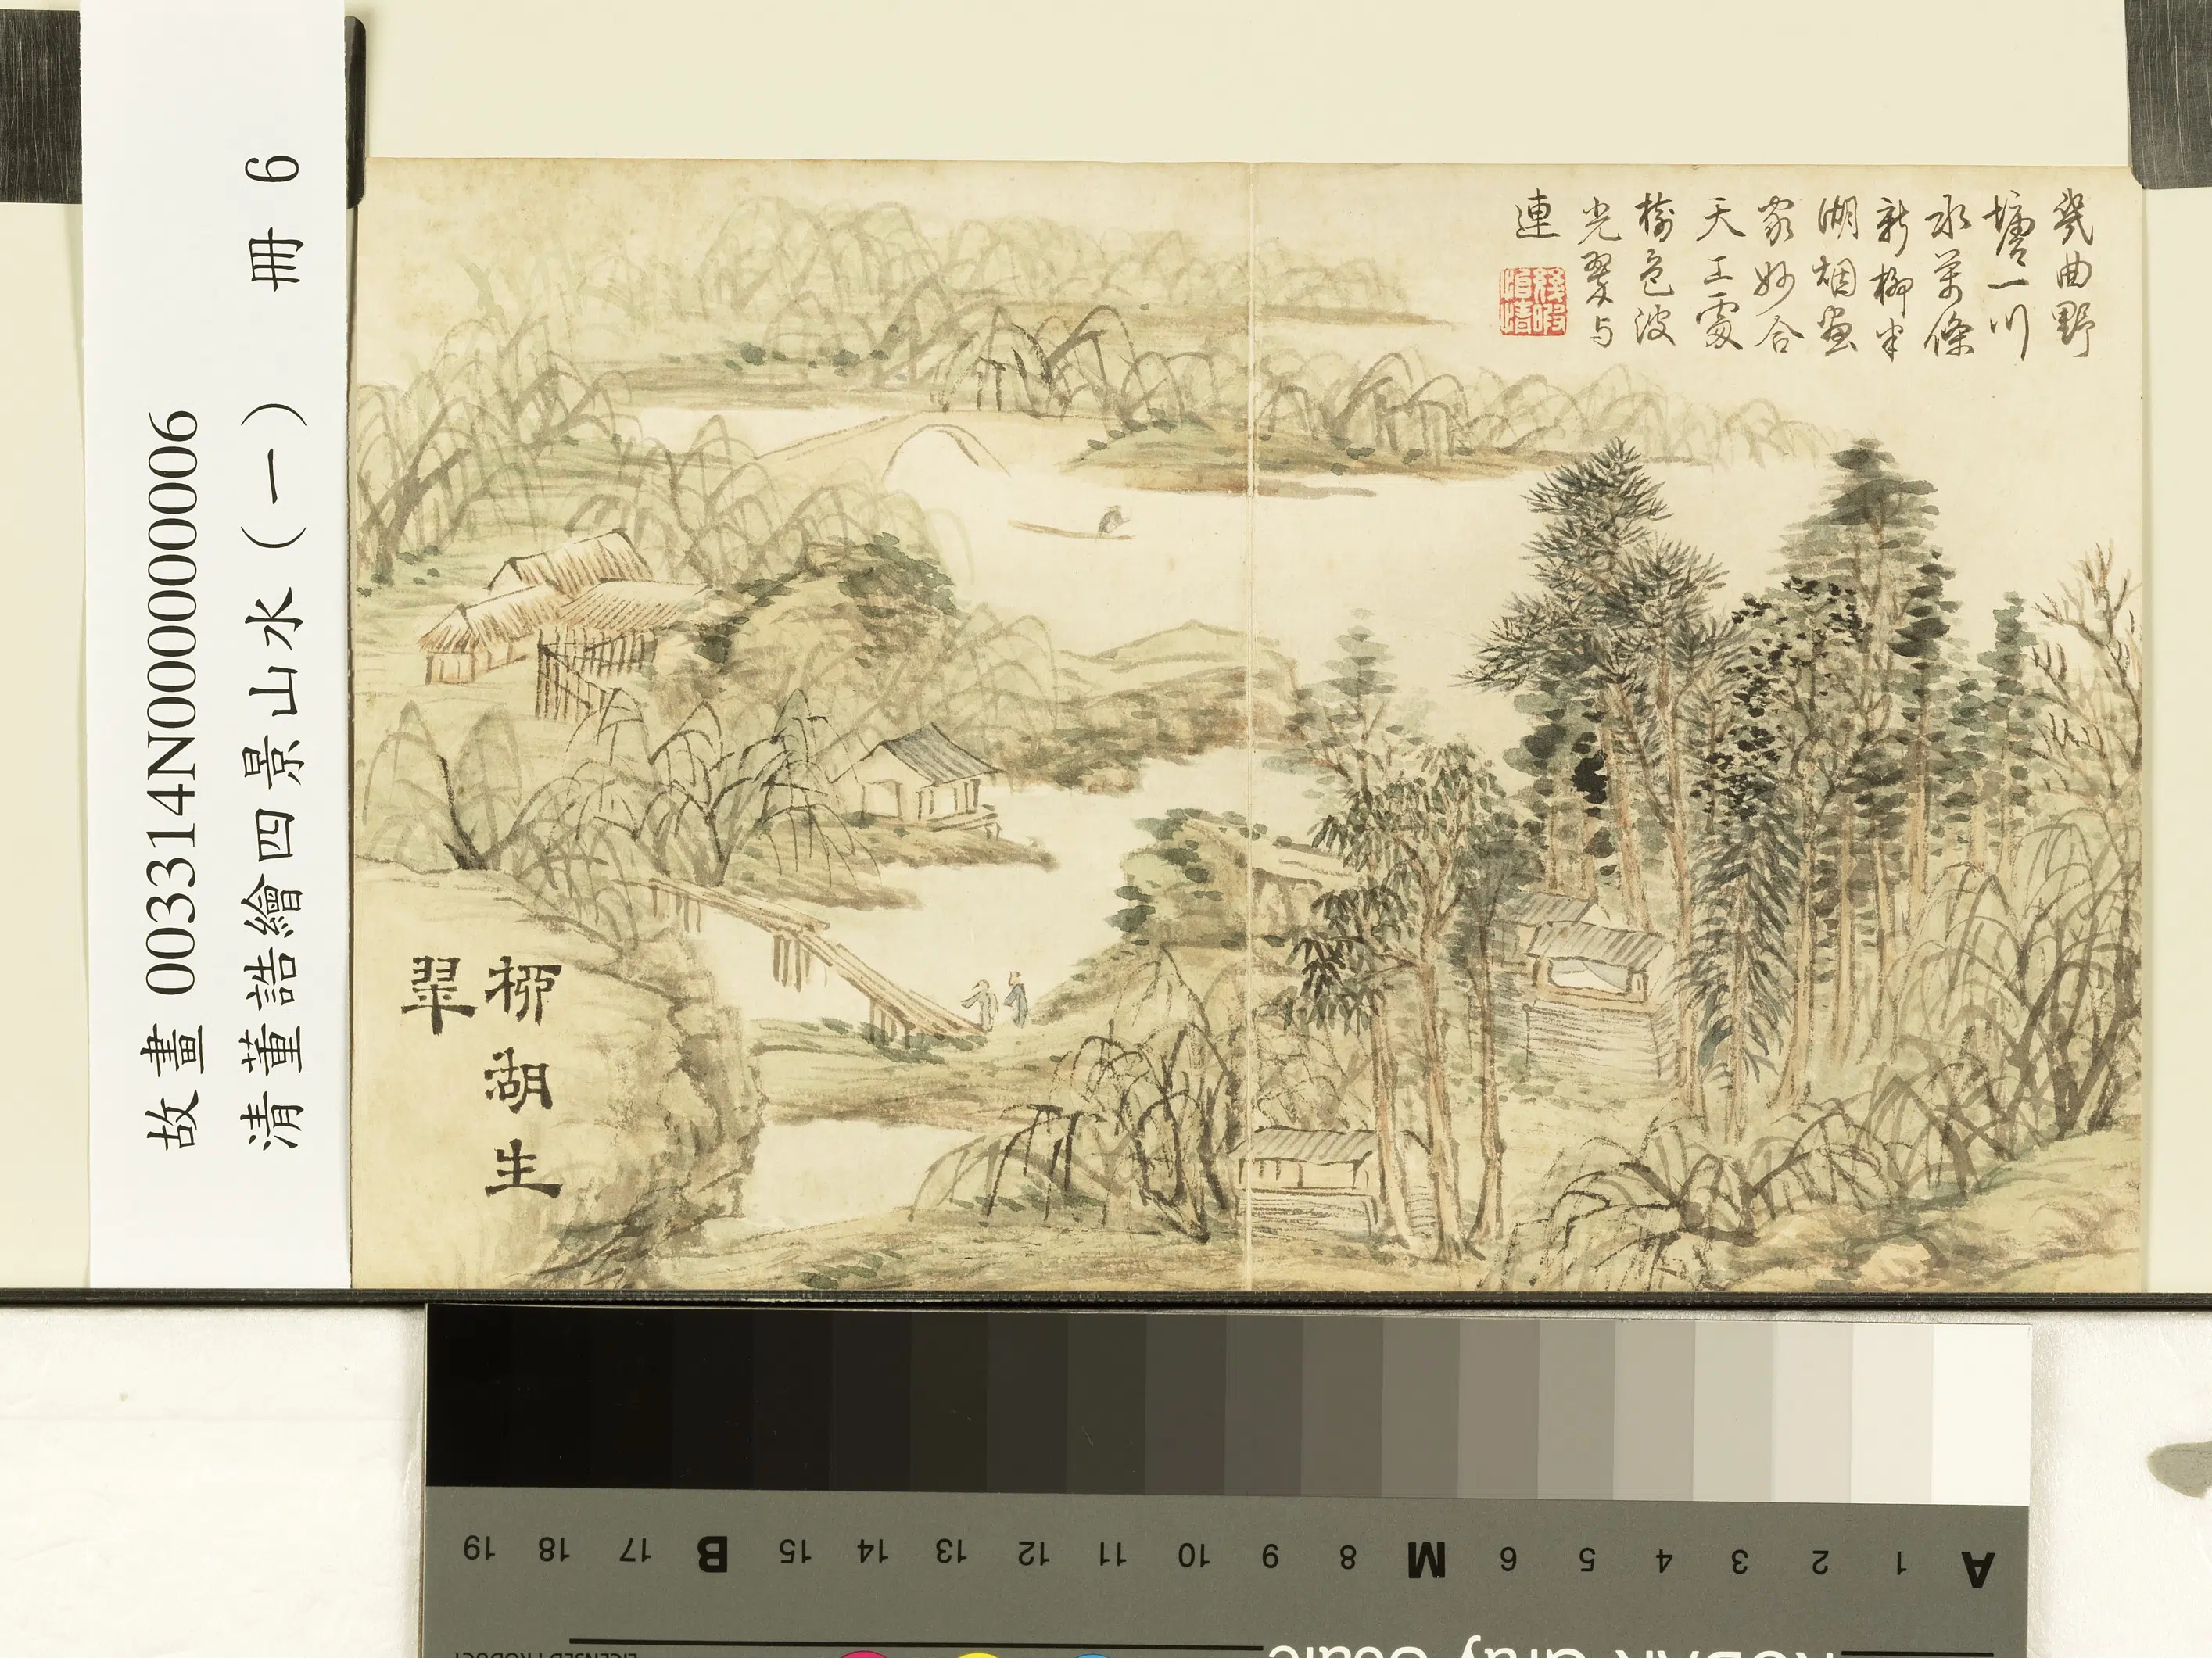 故畫 003314N000000006
清董誥繪四景山水（一） 冊 6
幾曲野
塘一川
水萬條
新柳半
湖烟畫
家妙合
天工處
樹色波
光翠与
連
幾暇
怡情
柳湖生
翠
A 1 2 3 4 5 6 M 8 9 10 11 12 13 14 15 B 17 18 19
KODAK Gray Scale
LICENSED PRODUCT